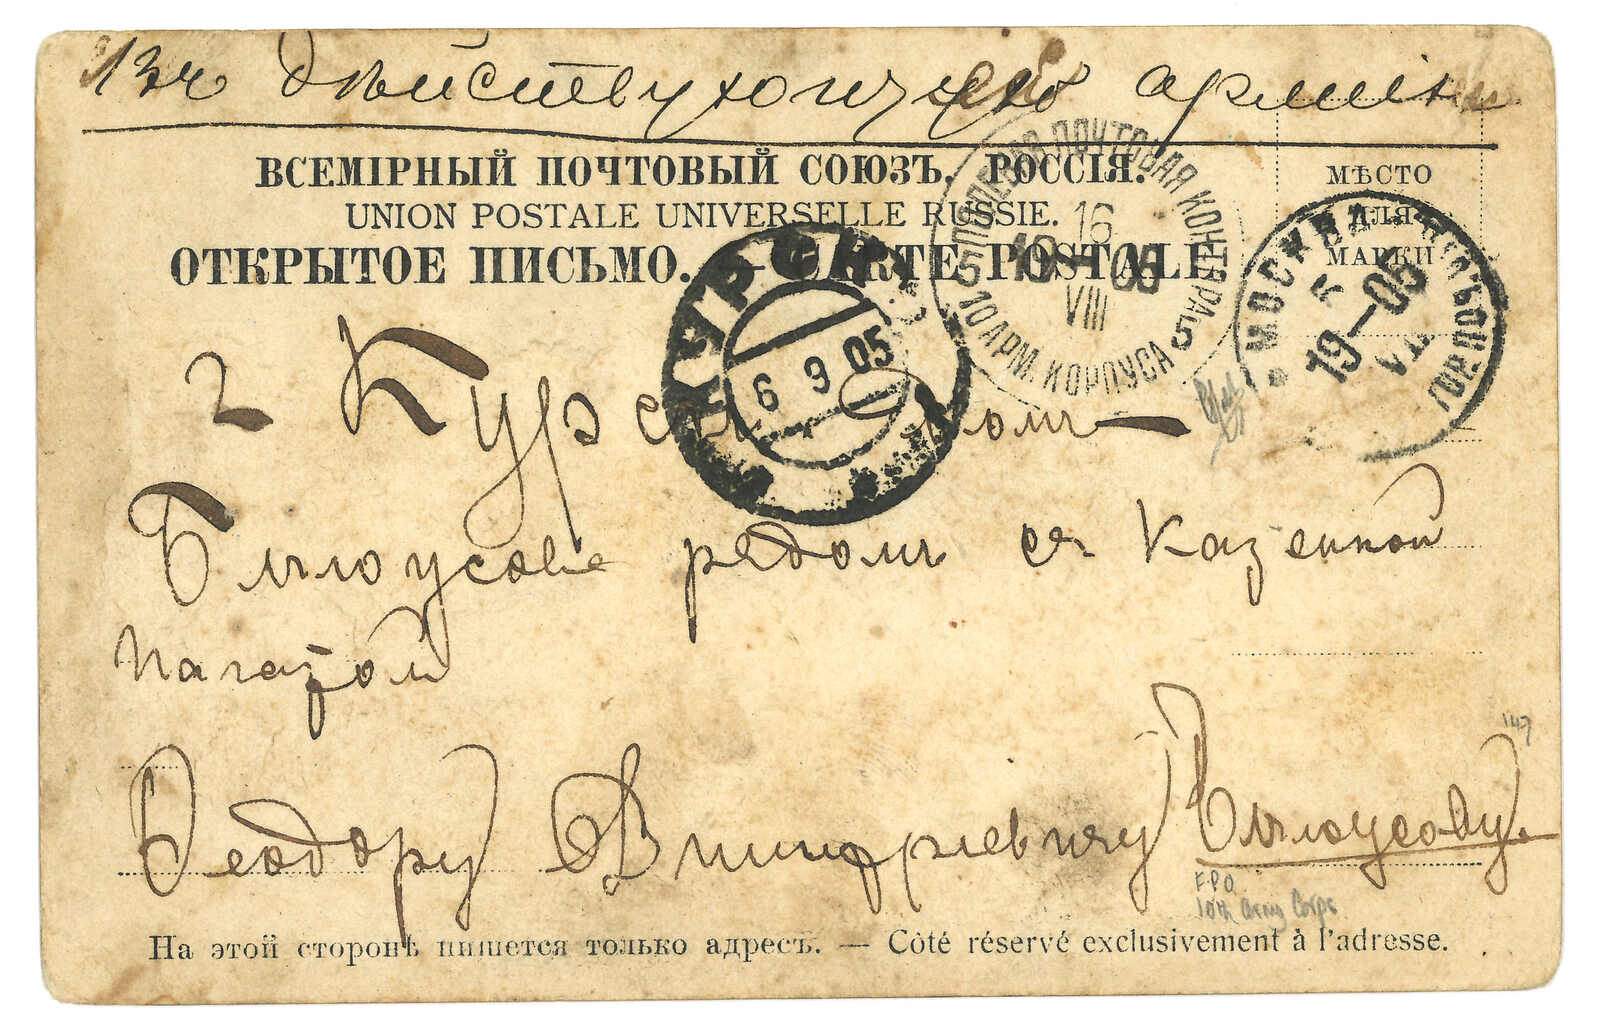 Изъ дѣйствующей арміи
ВСЕМІРНЫЙ ПОЧТОВЫЙ СОЮЗЪ. РОССІЯ.
UNION POSTALE UNIVERSELLE RUSSIE.
ОТКРЫТОЕ ПИСЬМО. — CARTE POSTALE
МѢСТО
ДЛЯ
МАРКИ
ПОЛЕВАЯ ПОЧТОВАЯ КОНТОРА
10 АРМ. КОРПУСА
16
19 05
VIII
5
5
МОСКВА
19—05
КУРСКЪ
6 9 05
г Курскъ домъ
Бѣлоусова рядомъ съ Казенной
Палатой
Феодору Димитриевичу Бѣлоусову
147
F.P.O.
10th Army Corps
На этой сторонѣ пишется только адресъ. — Côté réservé exclusivement à l'adresse.